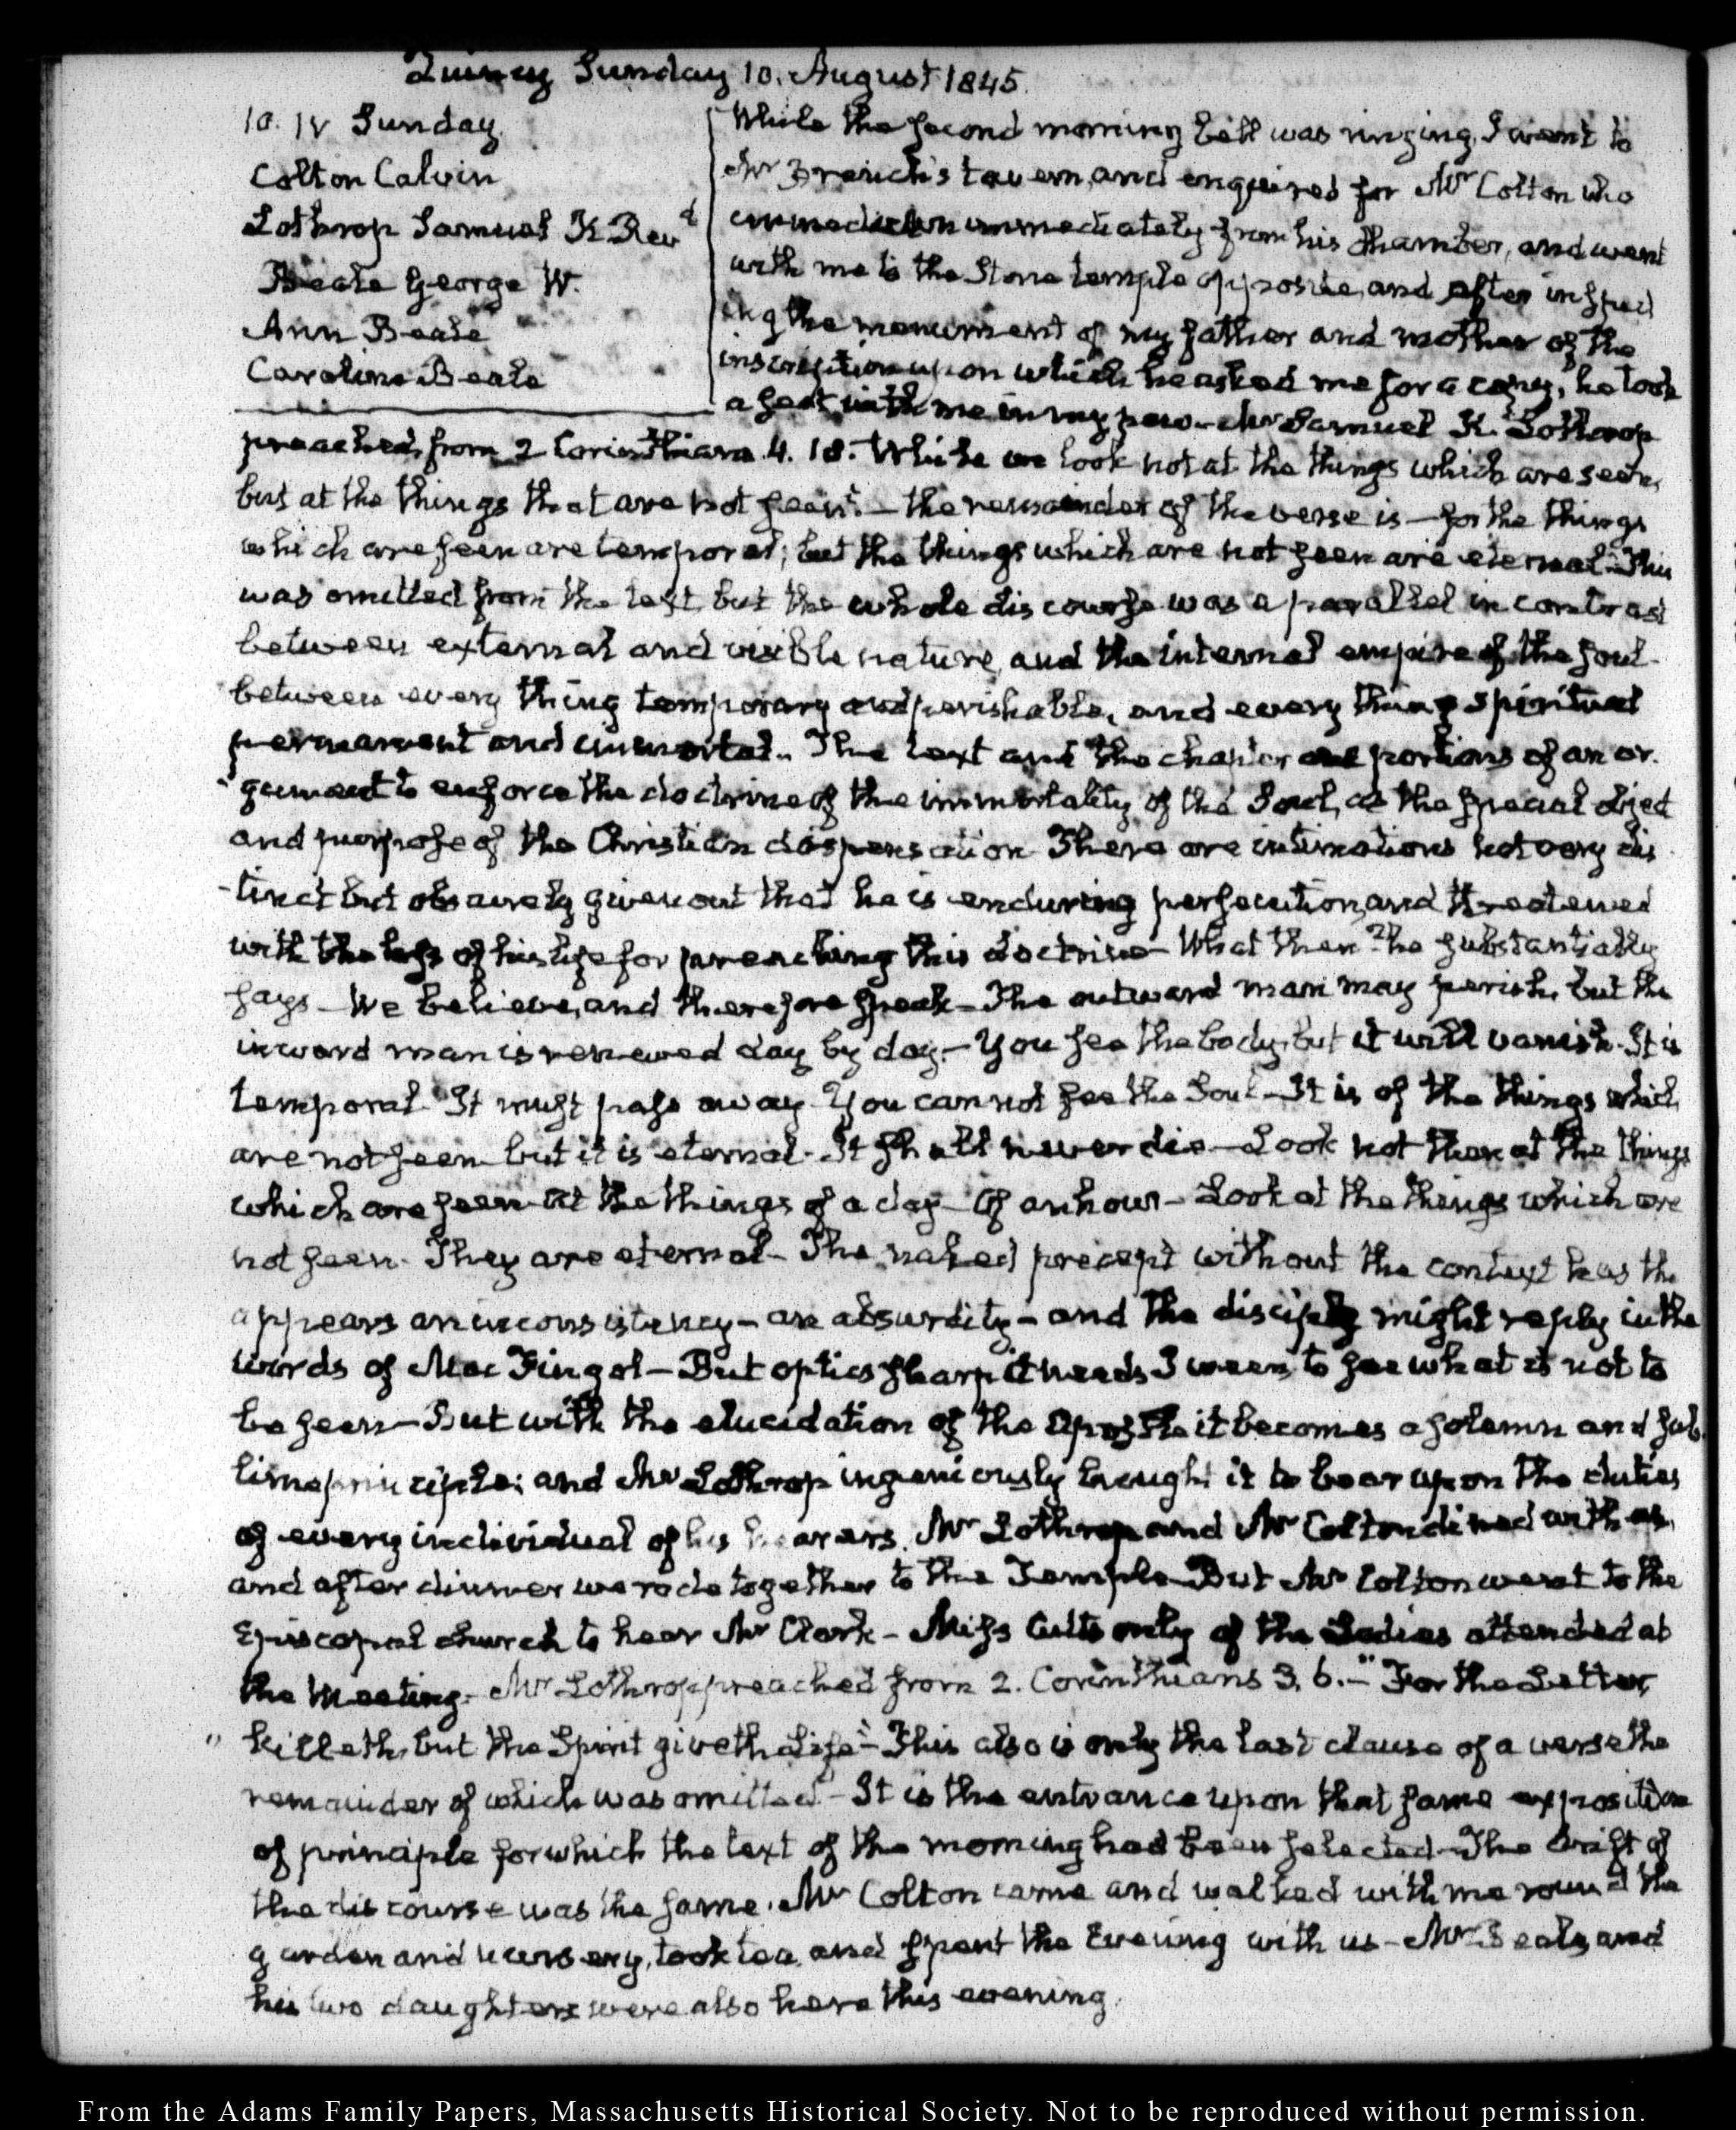 Quincy Sunday 10. August 1845.
10. IV Sunday
Colton Calvin
Lothrop Samuel K Revd
Beale George W.
Ann Beale
Caroline Beale
While the second morning bell was ringing, I went to
Mr French's tavern, and enquired for Mr Colton who
came down immediately from his chamber, and went
with me to the Stone temple opposite, and after inspect
ing the monument of my father and mother of the
inscription upon which he asked me for a copy, he took
a seat with me in my pew. Mr Samuel K. Lothrop
preached from 2 Corinthians 4. 18. While we look not at the things which are seen,
but at the things that are not seen" – the remainder of the verse is – for the things
which are seen are temporal; but the things which are not seen are eternal. This
was omitted from the text, but the whole discourse was a parallel in contrast
between external and visible nature, and the internal empire of the soul –
between every thing temporary and perishable, and every thing spiritual
permanent and immortal. The text and the chapter are portions of an ar-
gument to enforce the doctrine of the immortality of the Soul, as the special object
and purpose of the Christian dispensation. There are intimations not very dis
tinct but obscurely given out that he is enduring persecution, and threatened
with the loss of his life for preaching this doctrine – What then? he substantially
says – We believe, and therefore speak – The outward man may perish, but the
inward man is renewed day by day. – You see the body, but it will vanish. It is
temporal. It must pass away. You cannot see the Soul – It is of the things which
are not seen but it is eternal. It shall never die – Look not then at the things
which are seen – at the things of a day – Of an hour – Look at the things which are
not seen. They are eternal – The naked precept without the context has the
appears an inconsistency – an absurdity – and the disciple might reply in the
words of Mac Fingal – But optics sharp it needs I ween, to see what is not to
be seen – But with the elucidation of the Apostle it becomes a solemn and sub
lime principle; and Mr Lothrop ingeniously brought it to bear upon the duties
of every individual of his hearers. Mr Lothrop and Mr Colton dined with us,
and after dinner we rode together to the Temple – But Mr Colton went to the
Episcopal church to hear Mr Clark – Miss Cutts only of the Ladies attended at
the Meeting – Mr Lothrop preached from 2. Corinthians 3. 6. – "For the Letter
" killeth, but the Spirit giveth Life" – This also is only the last clause of a verse the
remainder of which was omitted – It is the entrance upon that same exposition
of principle for which the text of the morning had been selected – The drift of
the discourse was the same. Mr Colton came and walked with me round the
garden and nursery, took tea, and spent the Evening with us – Mr Beale, and
his two daughters were also here this evening.
From the Adams Family Papers, Massachusetts Historical Society. Not to be reproduced without permission.